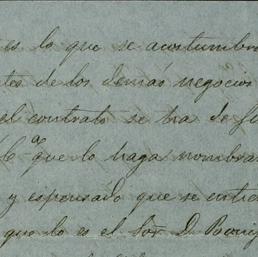 es lo que se acostumbra
tes de los demás negocios
el contrato se ha de
C.ª que lo haga nombra
y espensado que se entre
que lo es el Sor D.